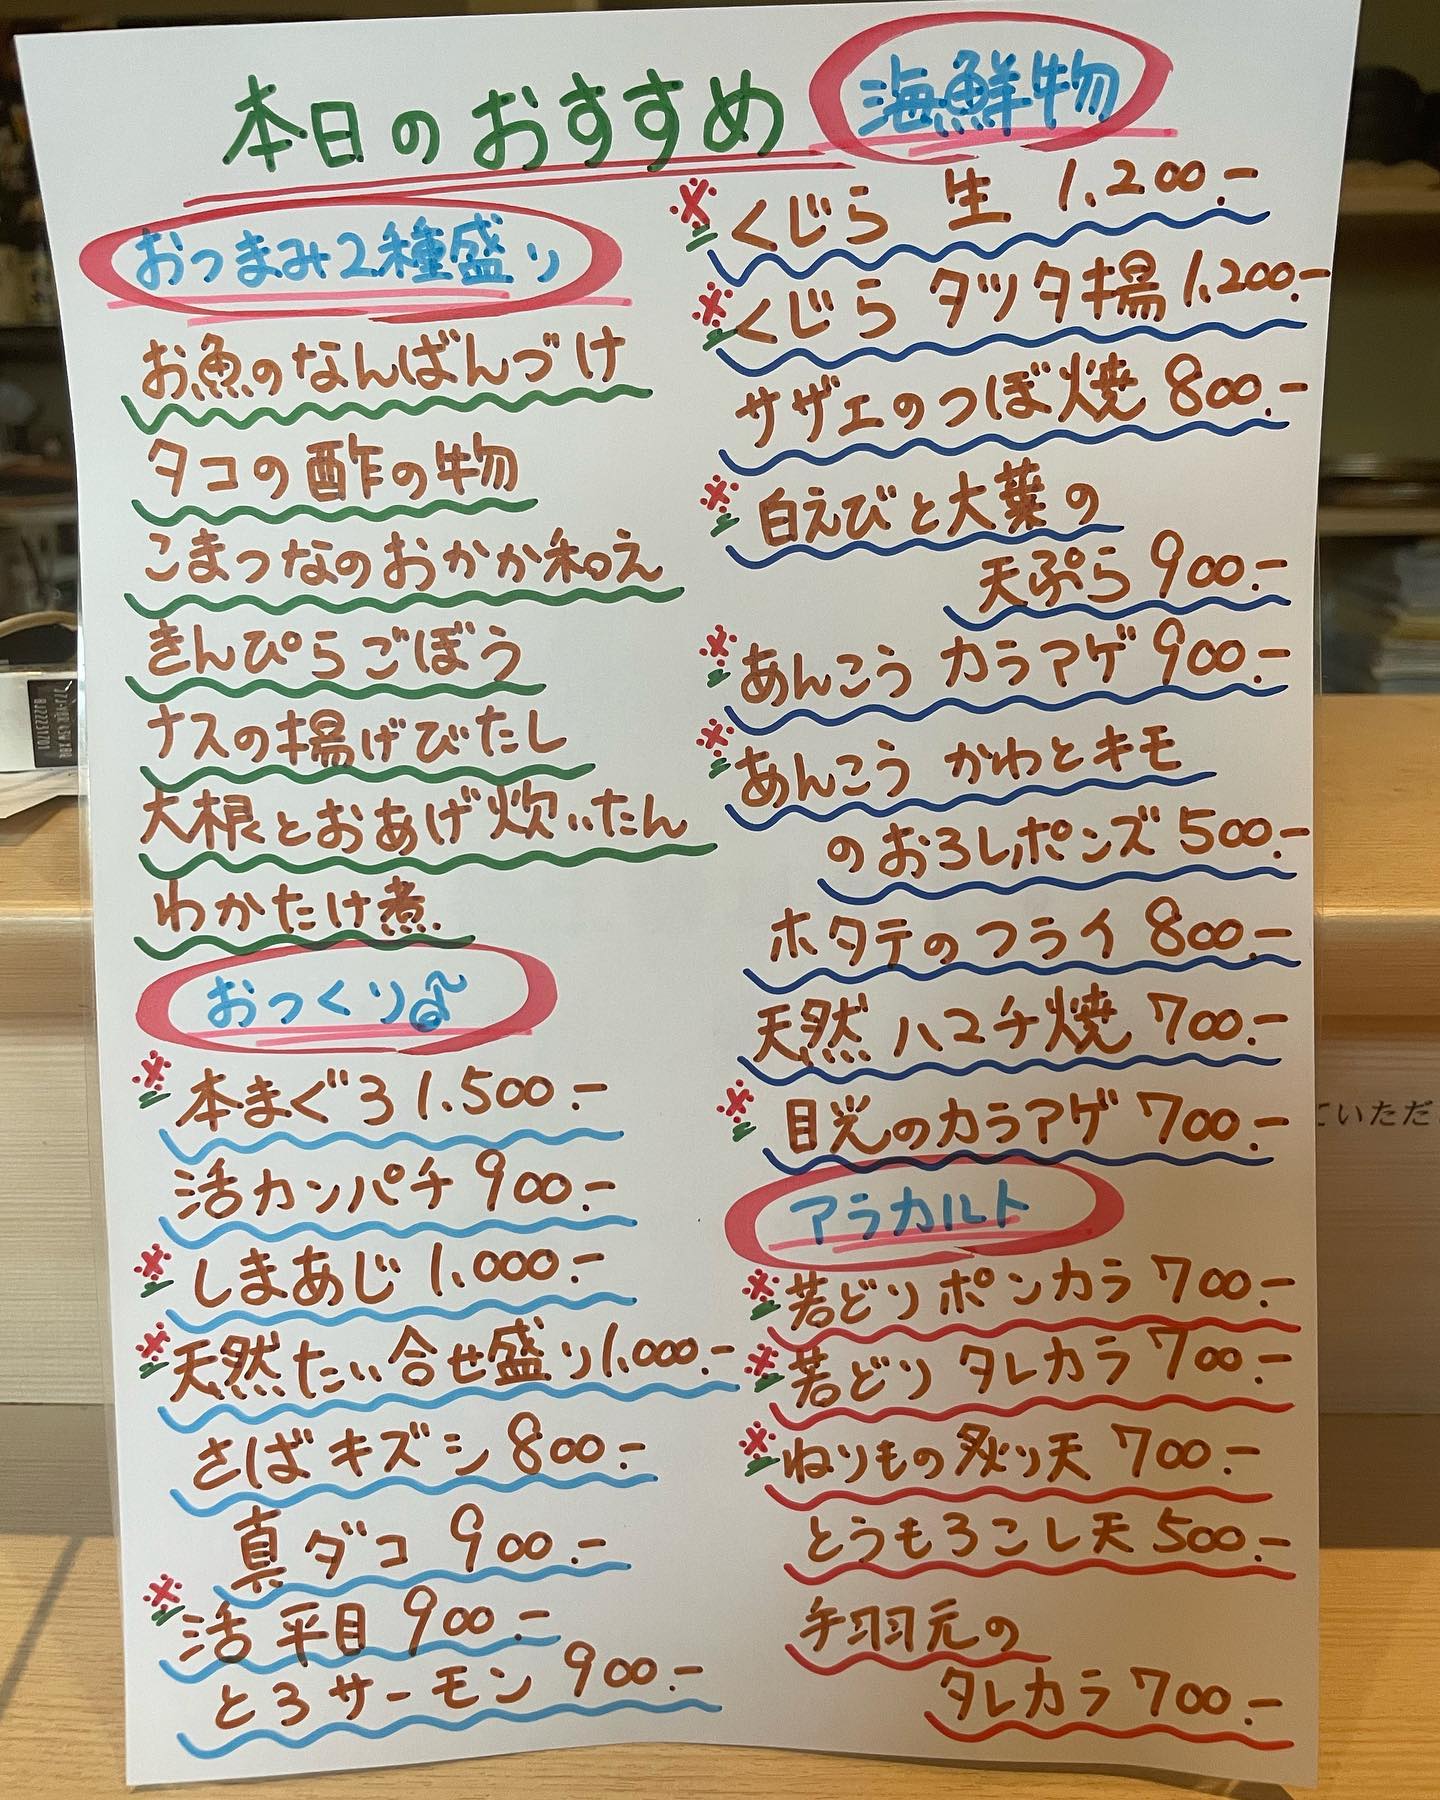 本日のおすすめ
おつまみ2種盛り
お魚のなんばんづけ
タコの酢の物
こまつなのおかか和え
きんぴらごぼう
ナスの揚げびたし
大根とおあげ炊いたん
わかたけ煮
おつくり
※本まぐろ 1.500.-
活カンパチ 900.-
※しまあじ 1.000.-
※天然たい合せ盛り 1.000.-
さばキズシ 800.-
真ダコ 900.-
※活平目 900.-
とろサーモン 900.-
海鮮物
※くじら 生 1.200.-
※くじら タツタ揚 1.200.-
サザエのつぼ焼 800.-
※白えびと大葉の
天ぷら 900.-
※あんこう カラアゲ 900.-
※あんこう かわとキモ
のおろしポンズ 500.-
ホタテのフライ 800.-
天然ハマチ焼 700.-
※目光のカラアゲ 700.-
アラカルト
※若どり ポンカラ 700.-
※若どり タレカラ 700.-
※ねりもの炙り天 700.-
とうもろこし天 500.-
手羽元の
タレカラ 700.-
ていただ